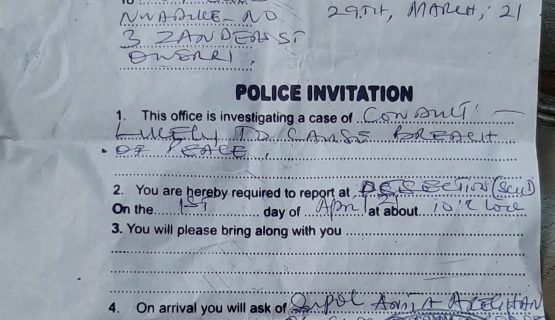 NWADIKE-ND 29TH, MARCH, 21
3 ZANDERS ST
OWERRI,
POLICE INVITATION
1. This office is investigating a case of CONDUCT
LIKELY TO CAUSE BREACH
OF PEACE.
2. You are hereby required to report at
On the 1ST day of April 21 at about 10'o'clock
3. You will please bring along with you
4. On arrival you will ask of